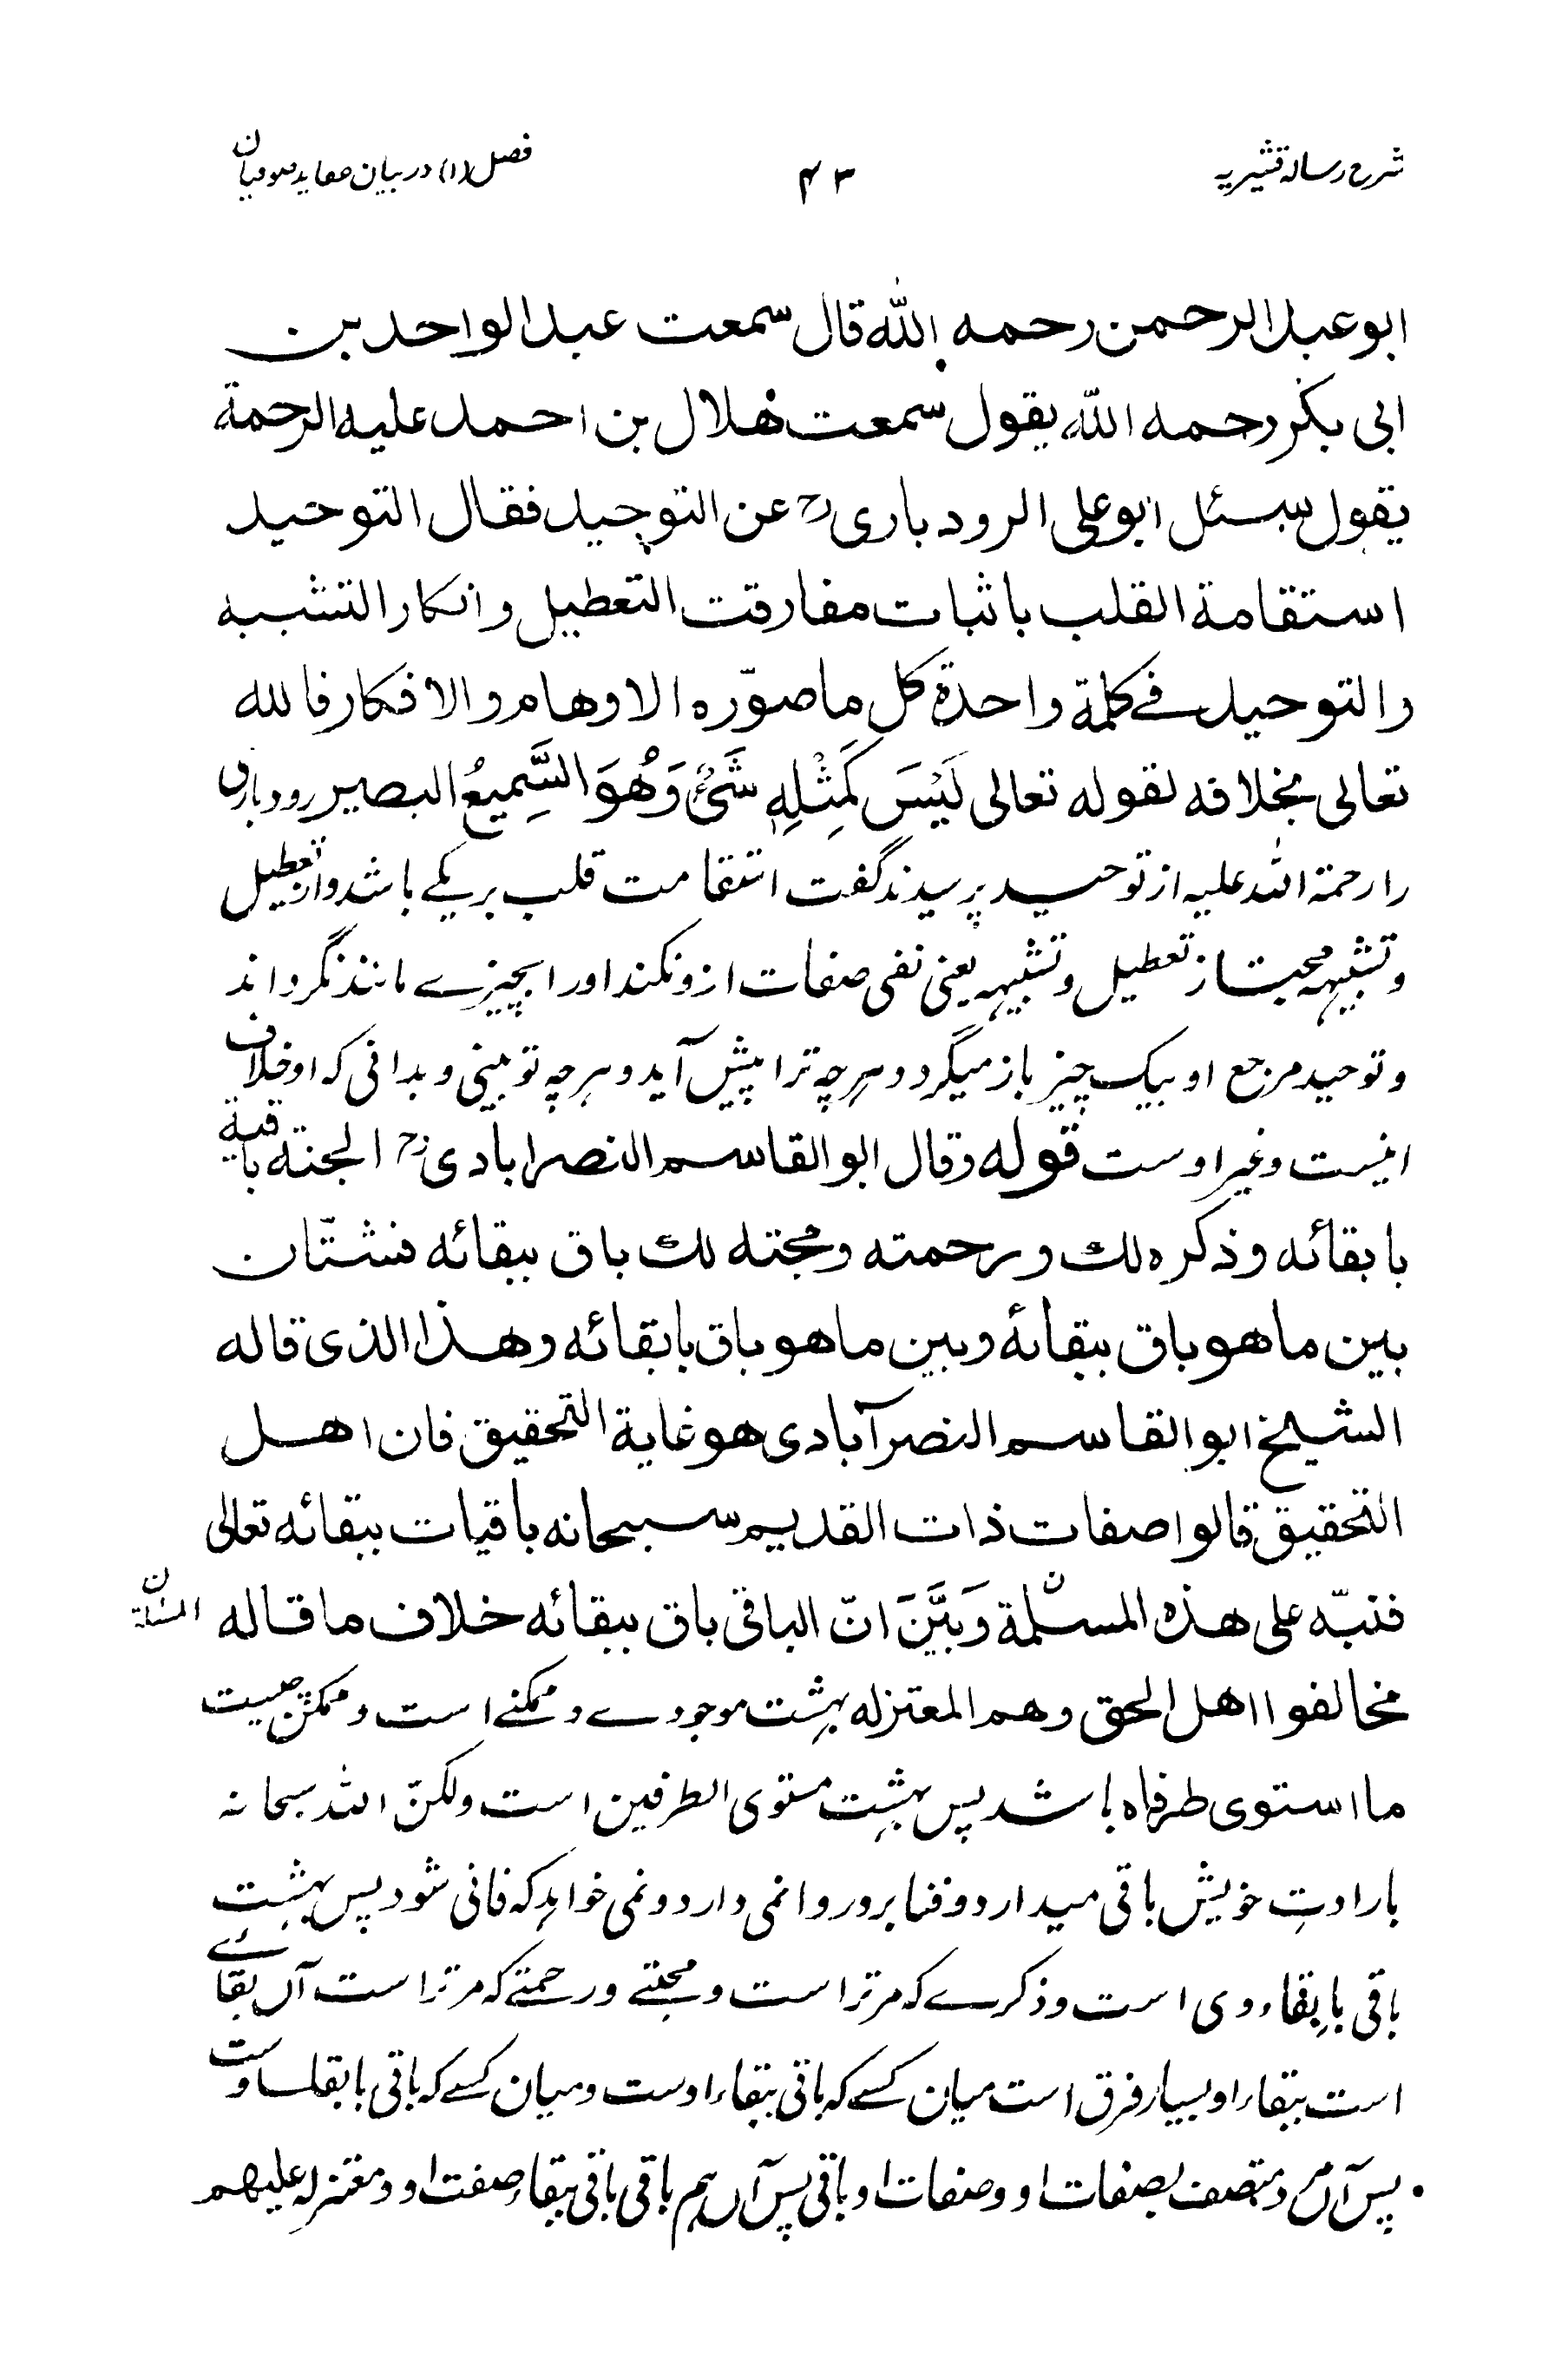 شرح رسالہ قشیریہ
۴۳
فصل (۱) در بیان عقاید صوفیان
ابو عبد الرحمن رحمه الله قال سمعت عبد الواحد بن
ابی بکر رحمه الله یقول سمعت هلال بن احمد علیه الرحمة
یقول سئل ابو علی الرودباری رح عن التوحید فقال التوحید
استقامة القلب باثبات مفارقت التعطیل وانکار التشبیه
والتوحید فے کلمة واحدة کل ما صوّره الاوهام والافکار فالله
تعالی بخلافه لقوله تعالی لَیْسَ کَمِثْلِهٖ شَیْءٌ وَهُوَ السَّمِیعُ البصیر رودباری
را رحمة اللہ علیہ از توحید پرسیدند گفت استقامت قلب بریکے باشد واز تعطیل
وتشبیہ مجتاز تعطیل وتشبیہ یعنی نفی صفات ازو نکند اورا بچیزے مانند نگرداند
وتوحید مرجع او بیک چیز باز میگردد وہرچہ ترا پیش آید وہرچہ تو بینی وبدانی کہ او خلاف
انیست وغیر اوست قوله وقال ابو القاسم النصرابادی رح الجنة باقیة
بابقائه وذکره لك ورحمته ومحبته لك باق ببقائه فشتّان
بین ما هو باق ببقائه وبین ما هو باق بابقائه وهذا الذی قاله
الشیخ ابو القاسم النصرآبادی هو غایة التحقیق فان اهل
التحقیق قالوا صفات ذات القدیم سبحانه باقیات ببقائه تعالی
فنبّه علی هذه المسئلة وَبَیَّنَ انّ الباقی باق ببقائه خلاف ما قاله
المسئلة ن
مخالفوا اهل الحق وهم المعتزله بہشت موجودے وممکنے است وممکن چیست
ما استوی طرفاه باشد پس بہشت مستوی الطرفین است ولکنّ اللہ سبحانہ
بارادتِ خویش باقی میدارد وفنا برو روا نمی دارد ونمی خواہد کہ فانی شود پس بہشت
باقی بابقاء وی است وذکرے کہ مر ترا است ومحبتے ورحمتے کہ مر ترا است آں بقاے
است ببقاء او بسیار فرق است میان کسے کہ باقی ببقاء اوست ومیان کسے کہ باقی بابقاے اوست
پس آں مرد متصف بصفات او وصفات او باقی پس آں ہم باقی باقی ببقاء صفت او ومعتزلہ علیهم